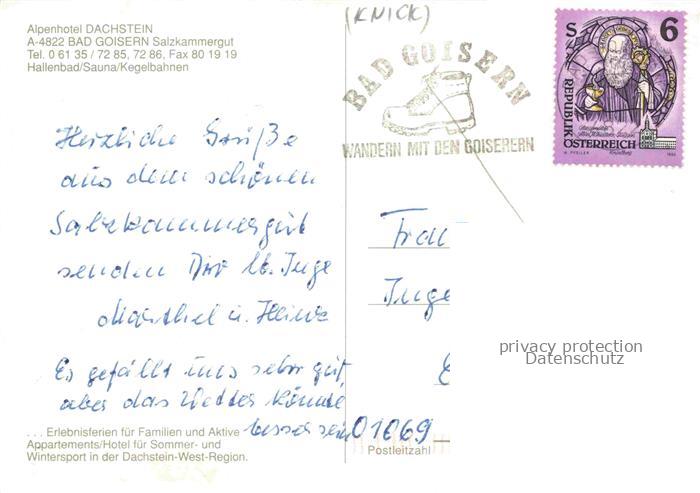 (KNICK)
Alpenhotel DACHSTEIN
A-4822 BAD GOISERN Salzkammergut
Tel. 0 61 35 / 72 85, 72 86, Fax 80 19 19
Hallenbad/Sauna/Kegelbahnen
BAD GOISERN
WANDERN MIT DEN GOISERERN
S 6
REPUBLIK
ÖSTERREICH
Herzliche Grüße
aus dem schönen
Salzkammergut
senden Dir lb. Inge
Marthel u. Heinz
Es gefällt uns sehr gut,
aber das Wetter könnte
besser sein
Frau
Inge
privacy protection
Datenschutz
01069
Postleitzahl
. . . Erlebnisferien für Familien und Aktive
Appartements/Hotel für Sommer- und
Wintersport in der Dachstein-West-Region.